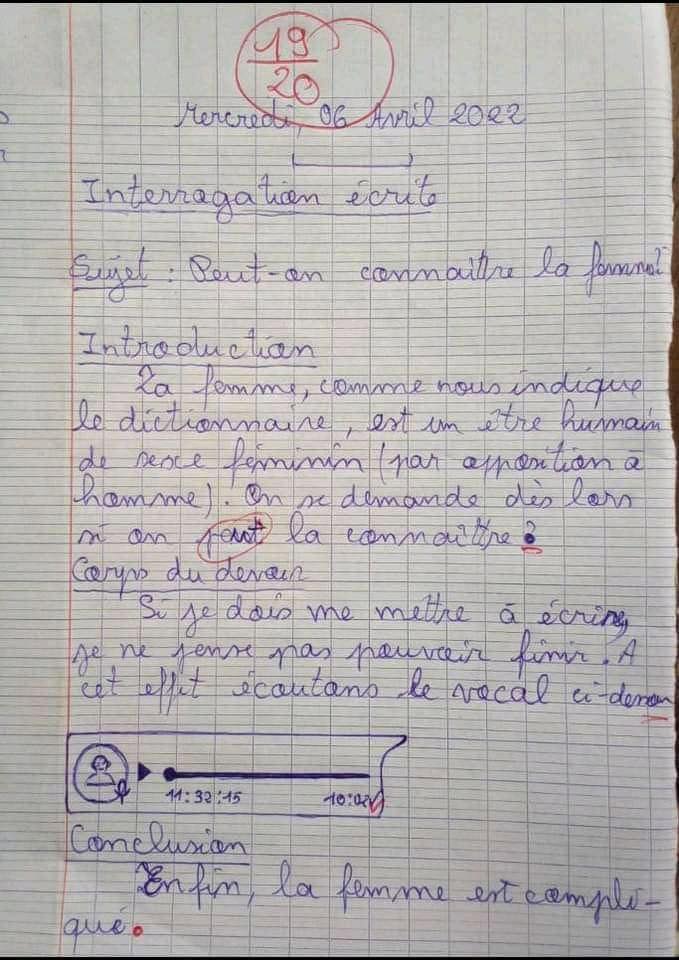 19
20
Mercredi, 06 Avril 2022
Interrogation écrite
Sujet : Peut-on connaître la femme?
Introduction
La femme, comme nous indique
le dictionnaire, est un être humain
de sexe féminin (par opposition à
homme). On se demande dès lors
si on peut la connaître ?
Corps du devoir
Si je dois me mettre à écrire,
je ne pense pas pouvoir finir. A
cet effet écoutons le vocal ci-dessous
11:32:15 10:02
Conclusion
Enfin, la femme est compli-
qué.